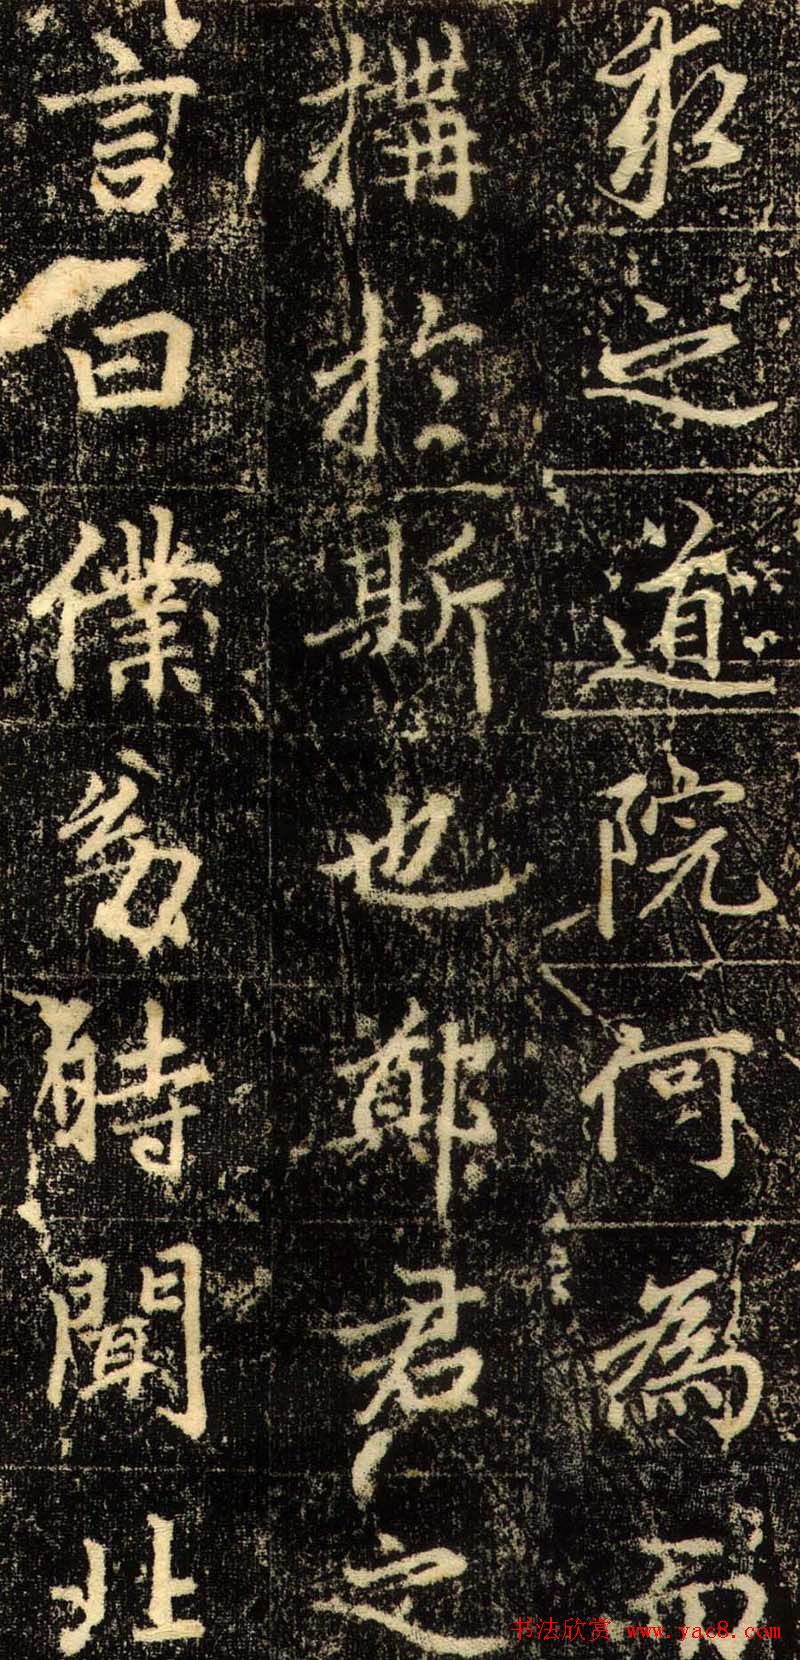 取之道院何為而
構於斯也鄭君之
言曰僕幼時聞北
书法欣赏 www.yac8.com